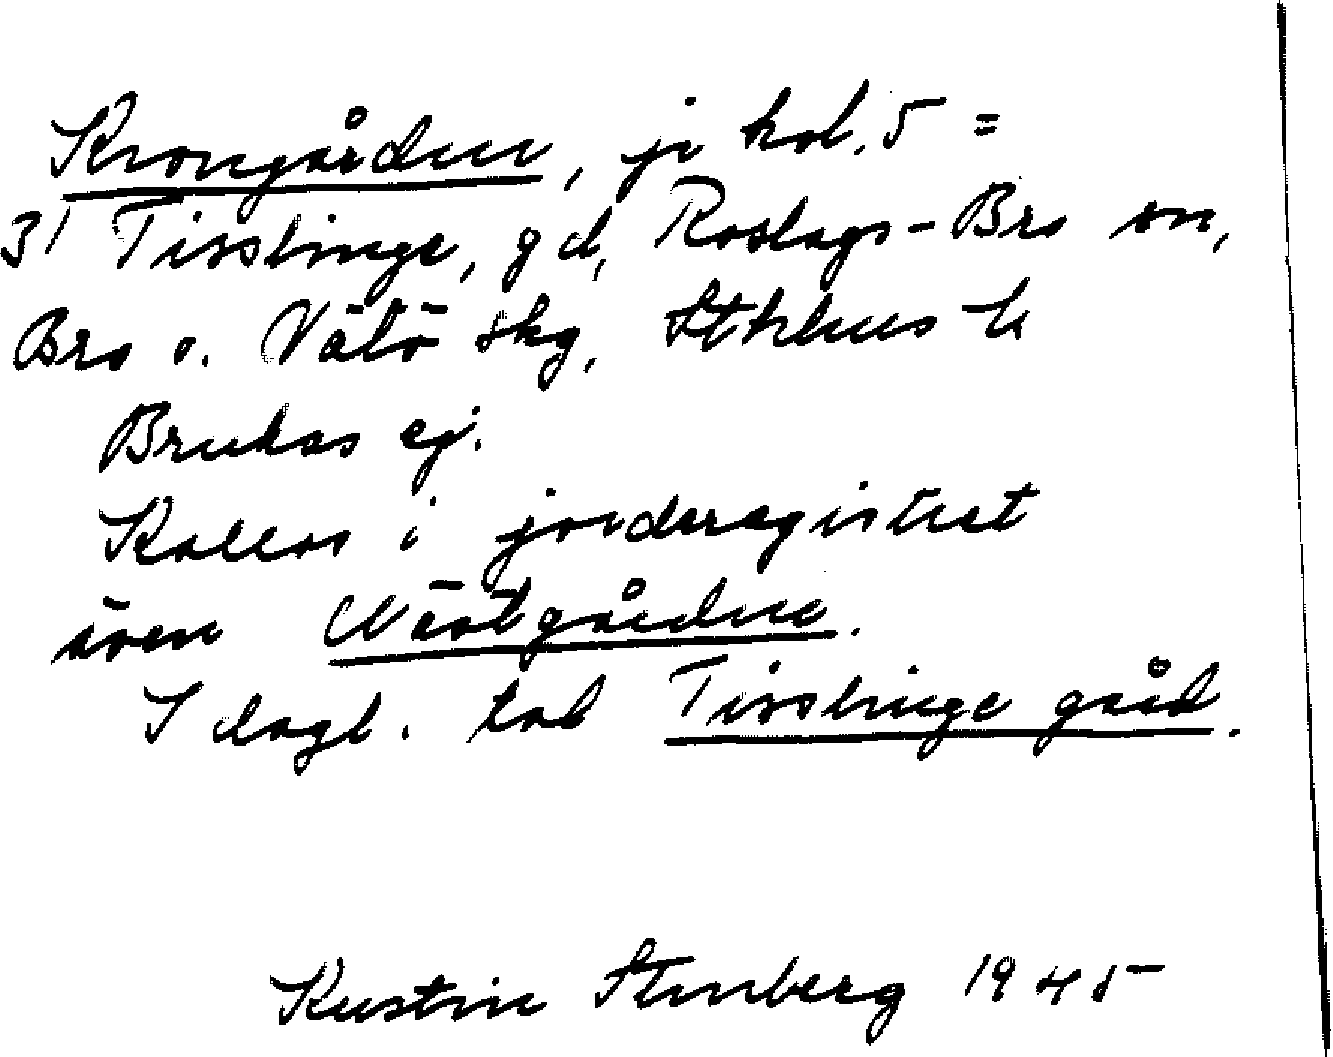 Krongården, jr kol. 5 =
3¹ Tisslinge, gd, Roslags-Bro sn,
Bro o. Vätö skg, Sthlms l.
Brukas ej.
Kallas i jordregistret
även Västgården.
I dagl. tal Tisslinge gård.
Kerstin Stenberg 1945